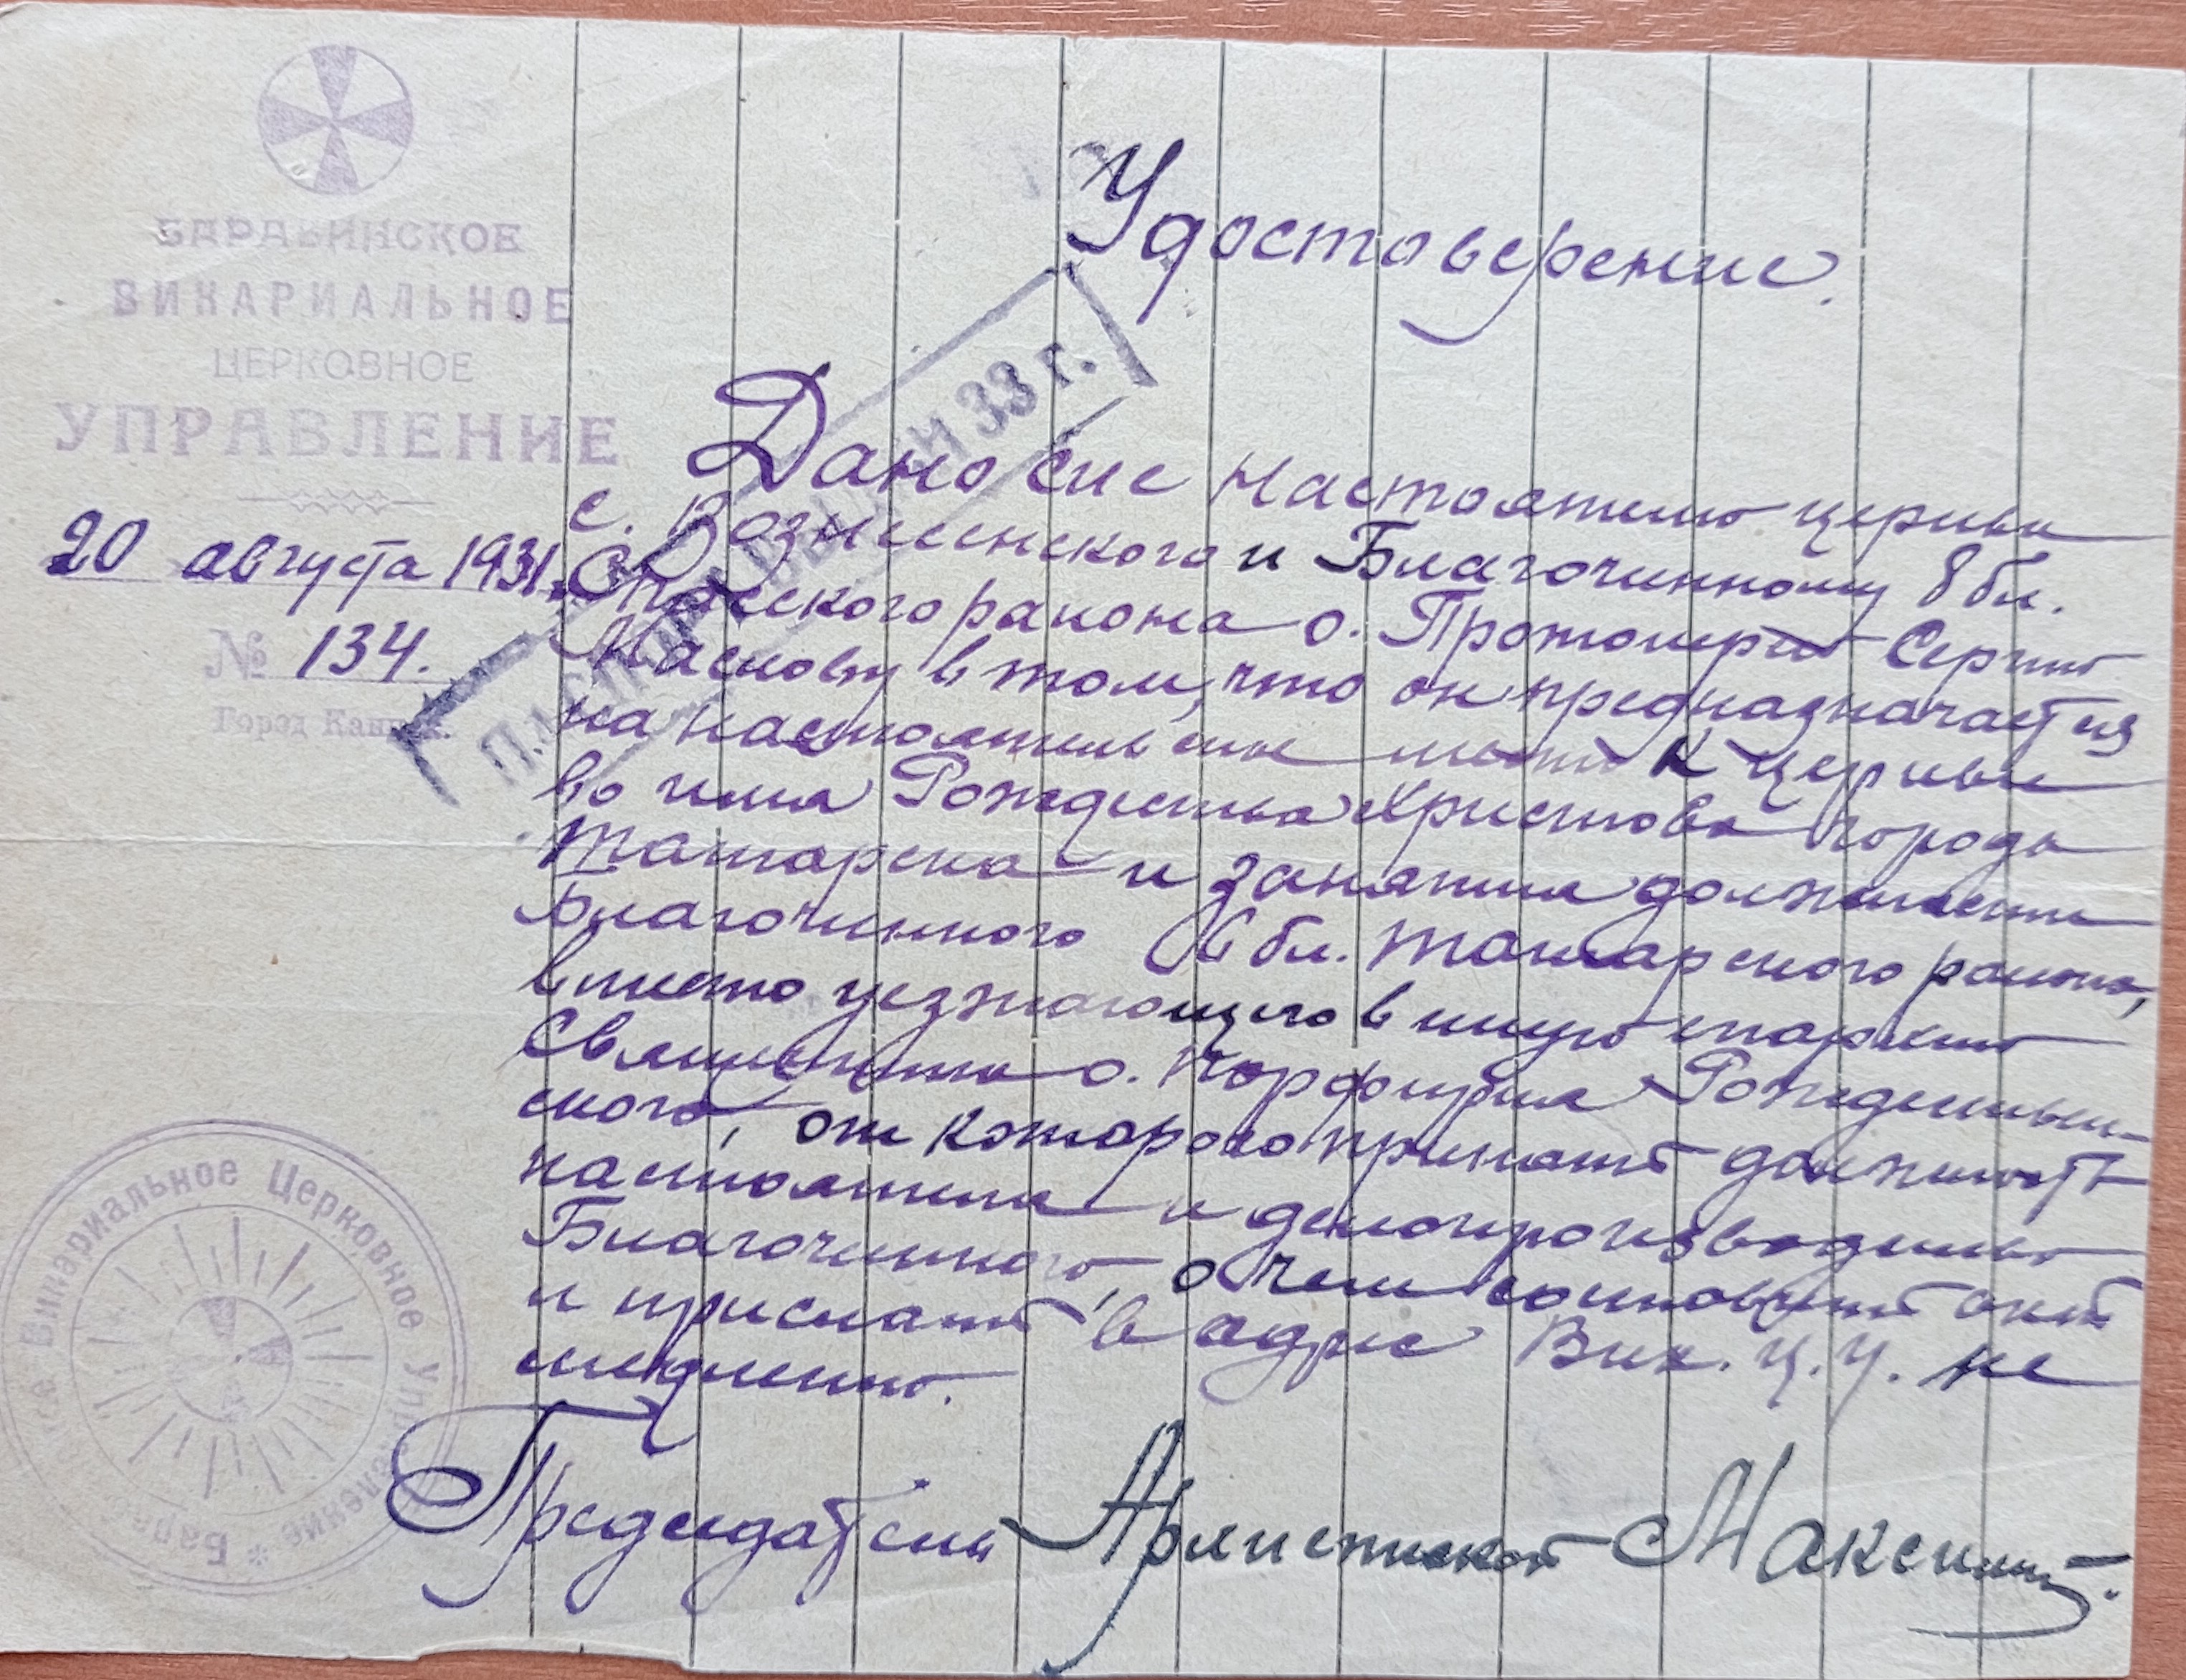 БАРАБИНСКОЕ
ВИКАРИАЛЬНОЕ
ЦЕРКОВНОЕ
УПРАВЛЕНИЕ
20 августа 1931
№ 134.
Город
Удостоверение.
Дано сие Настоятелю церкви
с. Вознесенского и Благочинному 8 бл.
Спасского района о. Протоиерею Сергию
в том, что он предназначается
на настоятельское место к церкви
во имя Рождества Христова города
Татарска и занятия должности
Благочинного 6 бл. Татарского района,
вместо уезжающего в иную епархию
Священника о. Порфирия Рождествен-
ского, от которого принять должность
настоятеля и делопроизводство
Благочинного, о чем составить акт
и прислать в адрес Вик. Ц. У. не
медленно.
Председатель Архиепископ Максим.
33 г.
Викариальное Церковное Управление * Бара